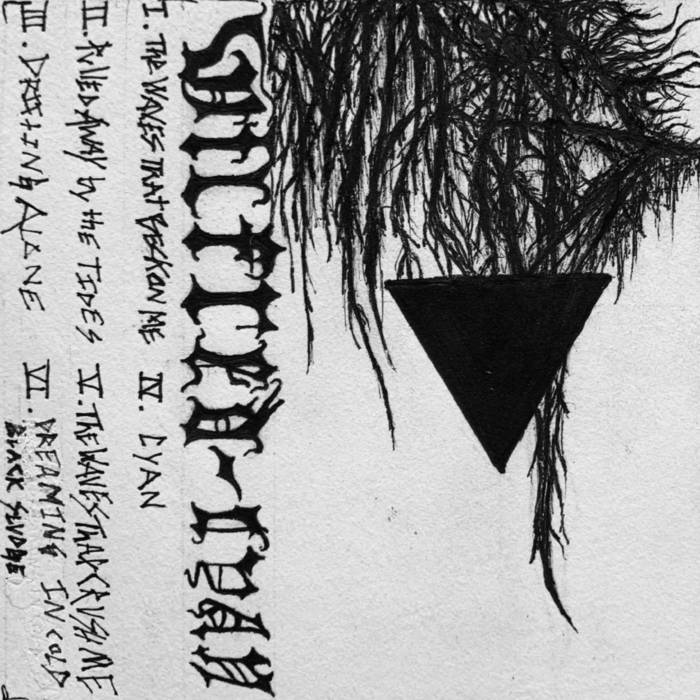 CYAN
I. THE WAVES THAT BECKON ME
II. PULLED AWAY by tHE TIDES
III. DRIFTING ALONE
IV. CYAN
V. THE WAVES THAT CRUSH ME
VI. DREAMING IN COLD
BLACK SLUDGE